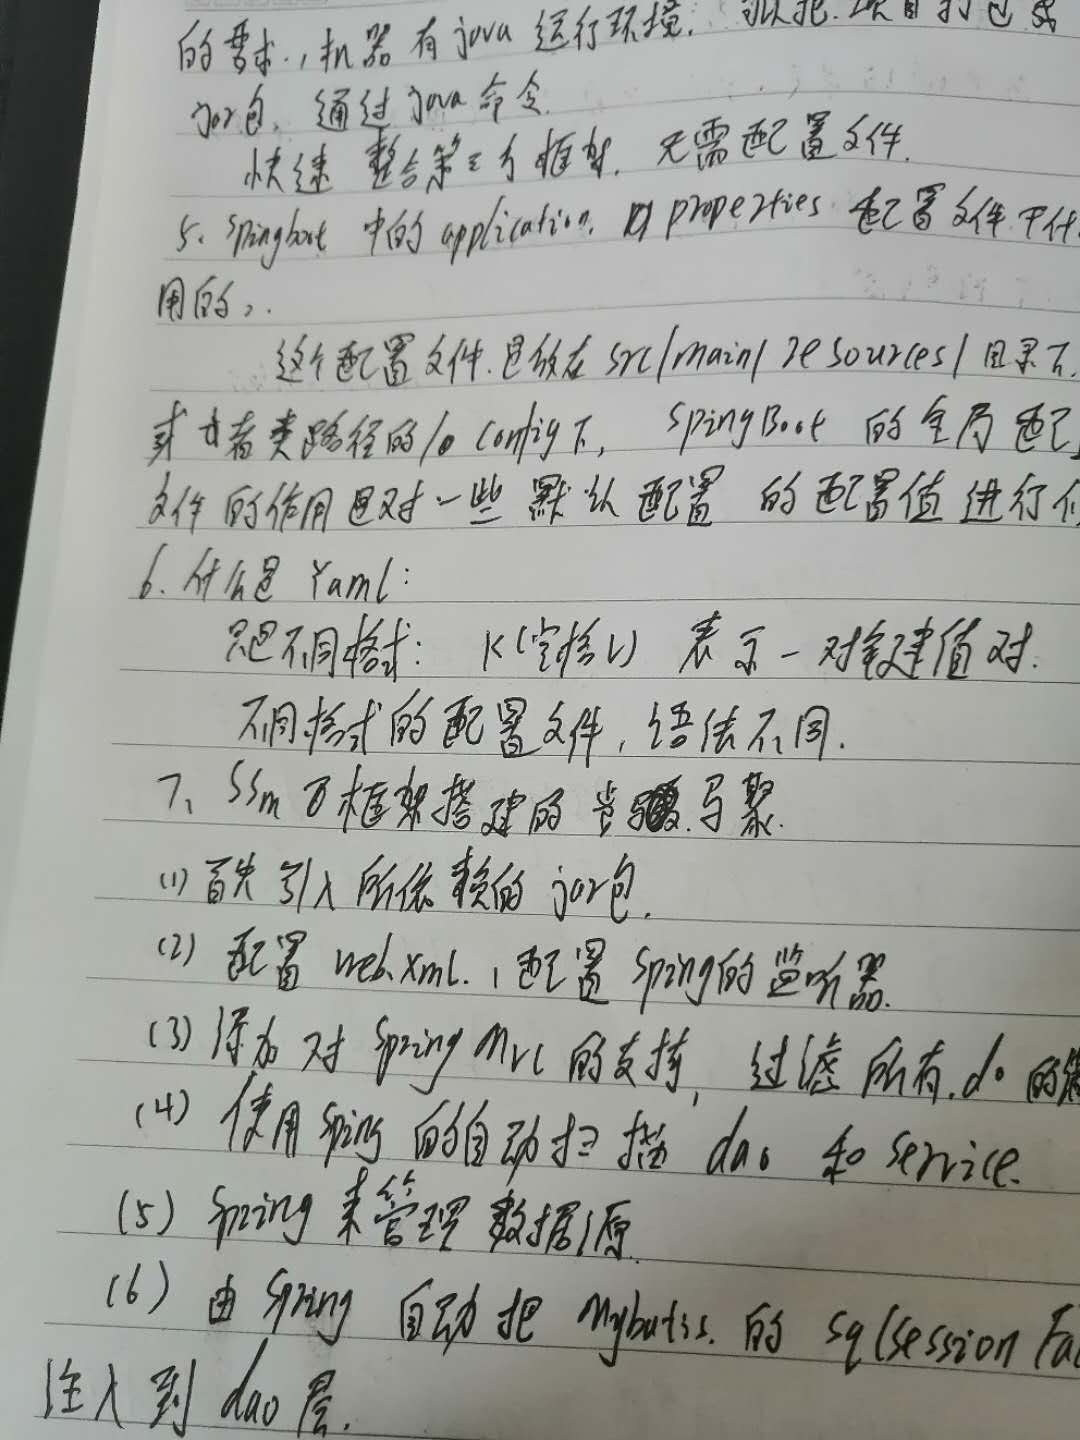 的要求,机器有java运行环境. 项目打包成
jar包, 通过java命令.
快速 整合第三方框架, 无需配置文件.
5. Spingboot 中的application. properties 配置文件 干什
用的,.
这个配置文件.是放在 src/main/resources/目录下,
或者类路径的/config下, SpingBoot 的全局配
文件的作用是对一些默认配置 的配置值进行
6. 什么是 Yaml:
只是不同格式: K(空格V) 表示一对键值对.
不同格式的配置文件,语法不同.
7、SSm 框架搭建的步聚.
(1) 首先引入所依赖的jar包.
(2) 配置 web.xml.,配置Sping的监听器.
(3) 添加对 Spring Mvc 的支持, 过滤所有.do的
(4) 使用Sping 的自动扫描 dao 和 service.
(5) Spring来管理数据源.
(6) 由Spring 自动把 Mybatis. 的 sqlsession Fac
注入到 dao层.